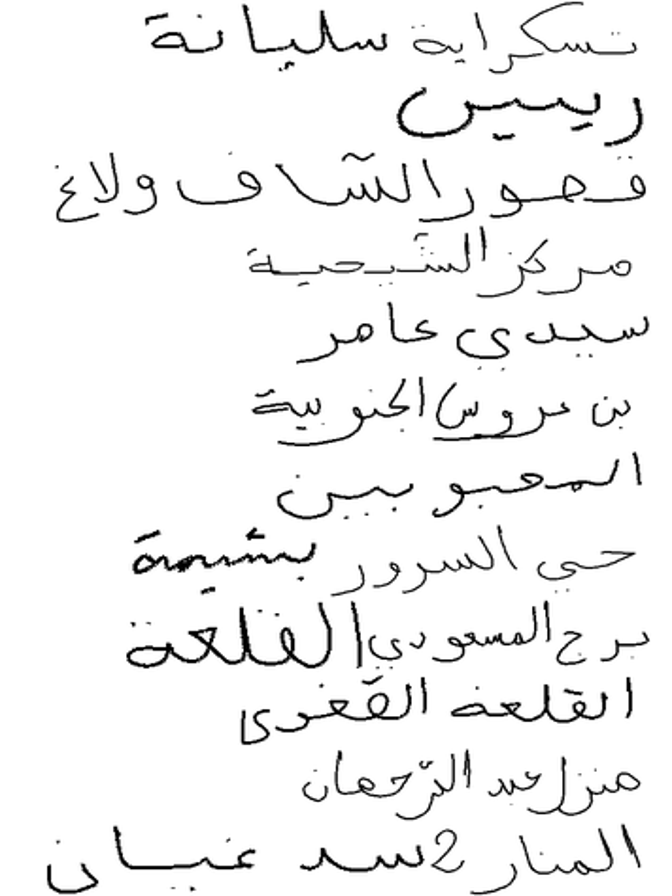 تسكراية سليانة
ريبس
قصور الساف ولاغ
مركز الشيحية
سيدي عامر
بن عروس الجنوبية
المعبوبين
حي السرور بشيمة
برج المسعودي القلعة
القلعة القغرى
منزل عبد الرحمان
المنار 2 سد غيسان